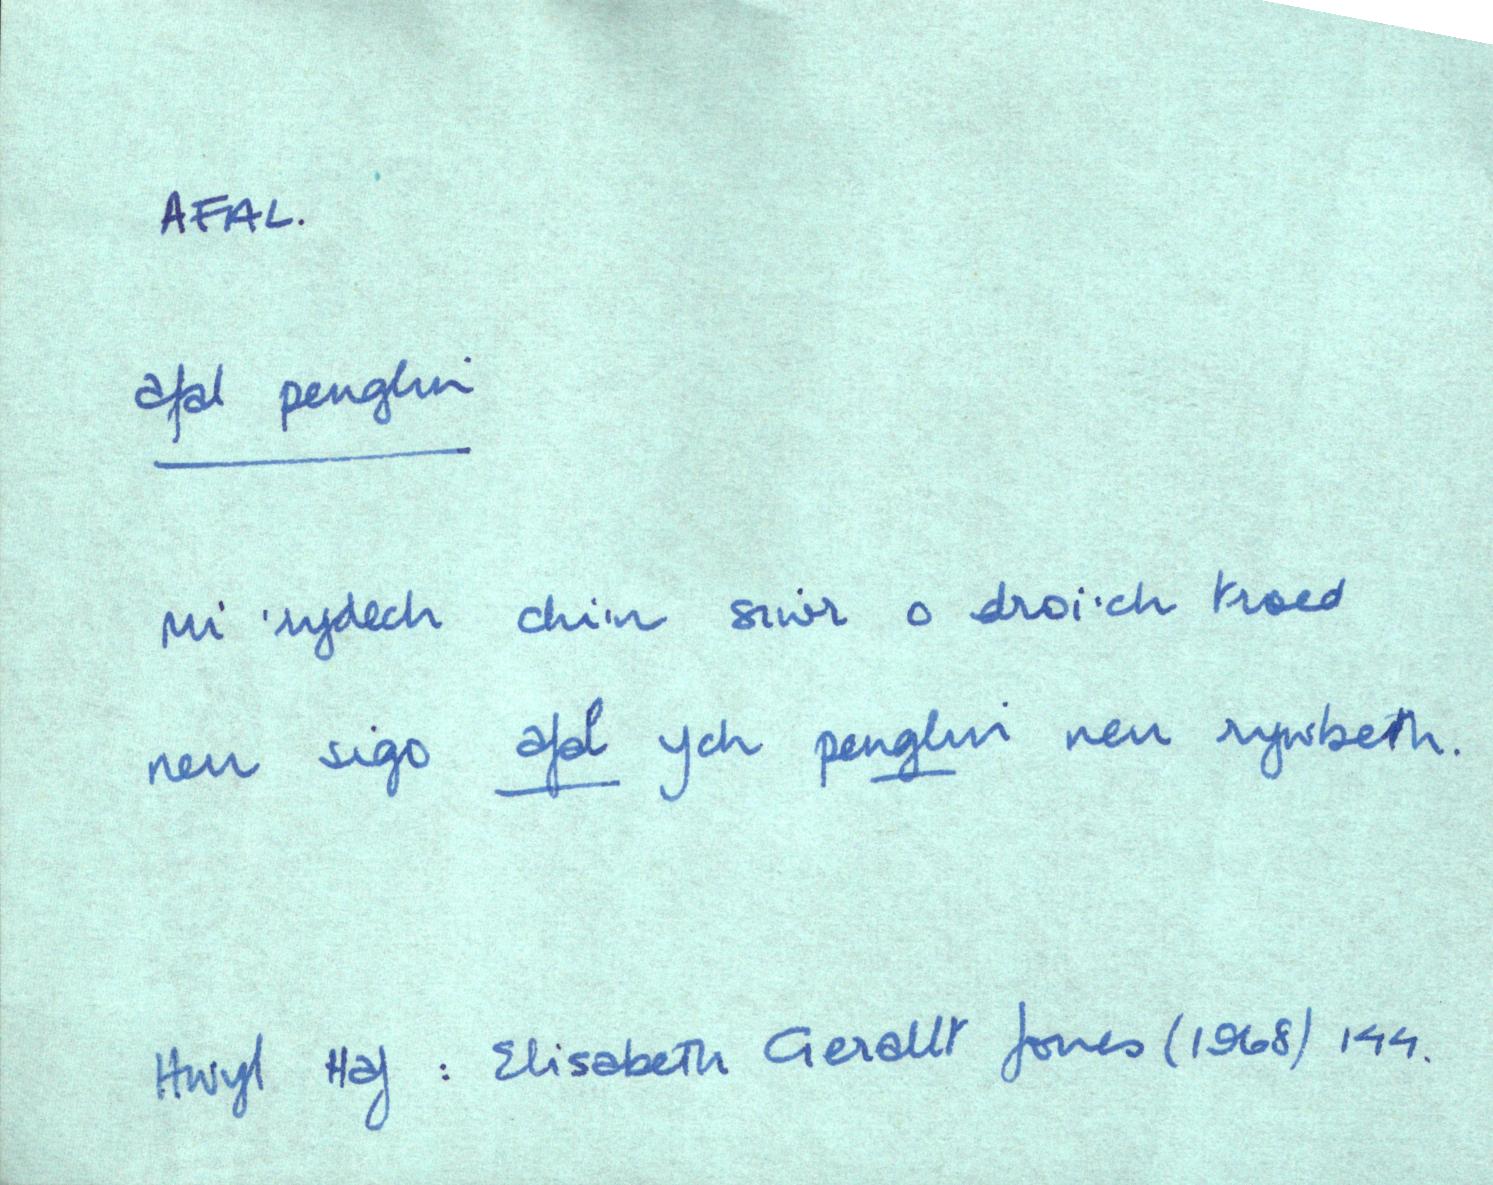 AFAL.
afal penglin
Mi 'rydech chi'n siwr o droi'ch troed
neu sigo afal ych penglin neu rywbeth.
Hwyl Haf : Elisabeth Gerallt Jones (1968) 144.